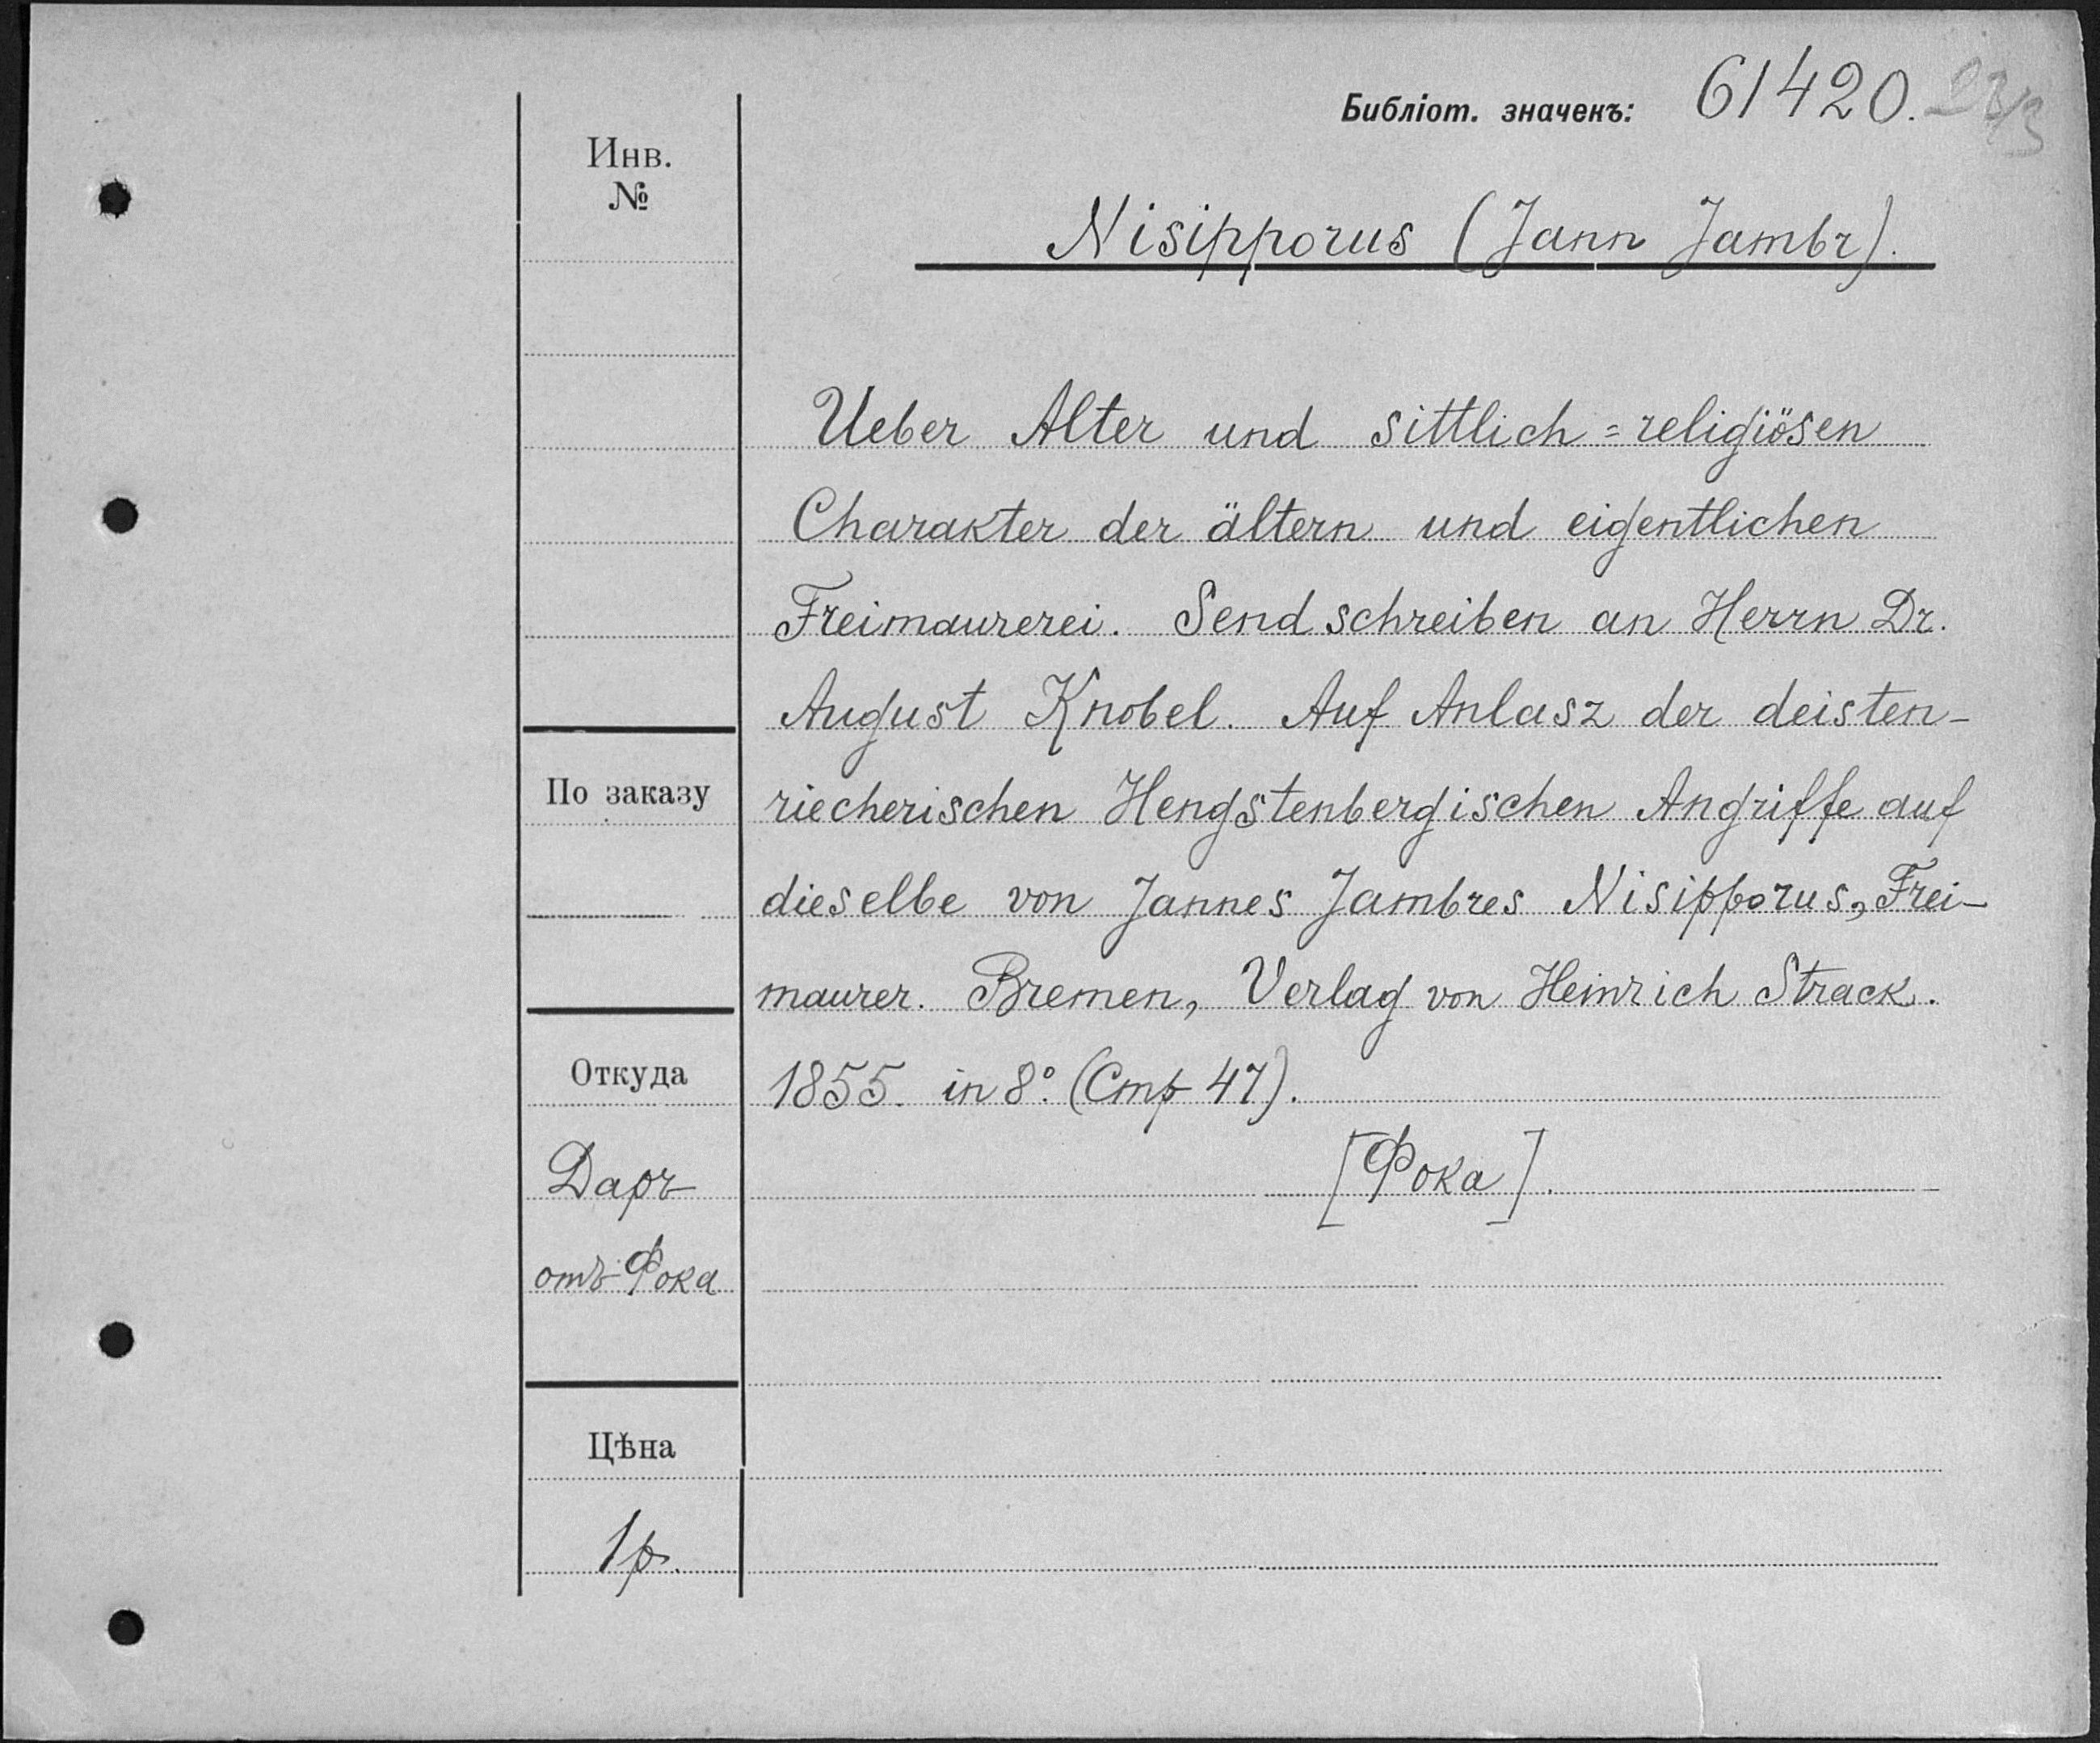 Библіот. значекъ: 61420.
Инв.
№
Nisipporus (Jann Jambr).
Ueber Alter und sittlich=religiösen
Charakter der ältern und eigentlichen
Freimaurerei. Sendschreiben an Herrn Dr.
August Knobel. Auf Anlasz der deisten-
По заказу
riecherischen Hengstenbergischen Angriffe auf
dieselbe von Jannes Jambres Nisipporus, Frei-
maurer. Bremen, Verlag von Heinrich Strack.
Откуда
1855. in 8°. (Стр 47).
Даръ
[Фока].
отъ Фока
Цѣна
1 р.